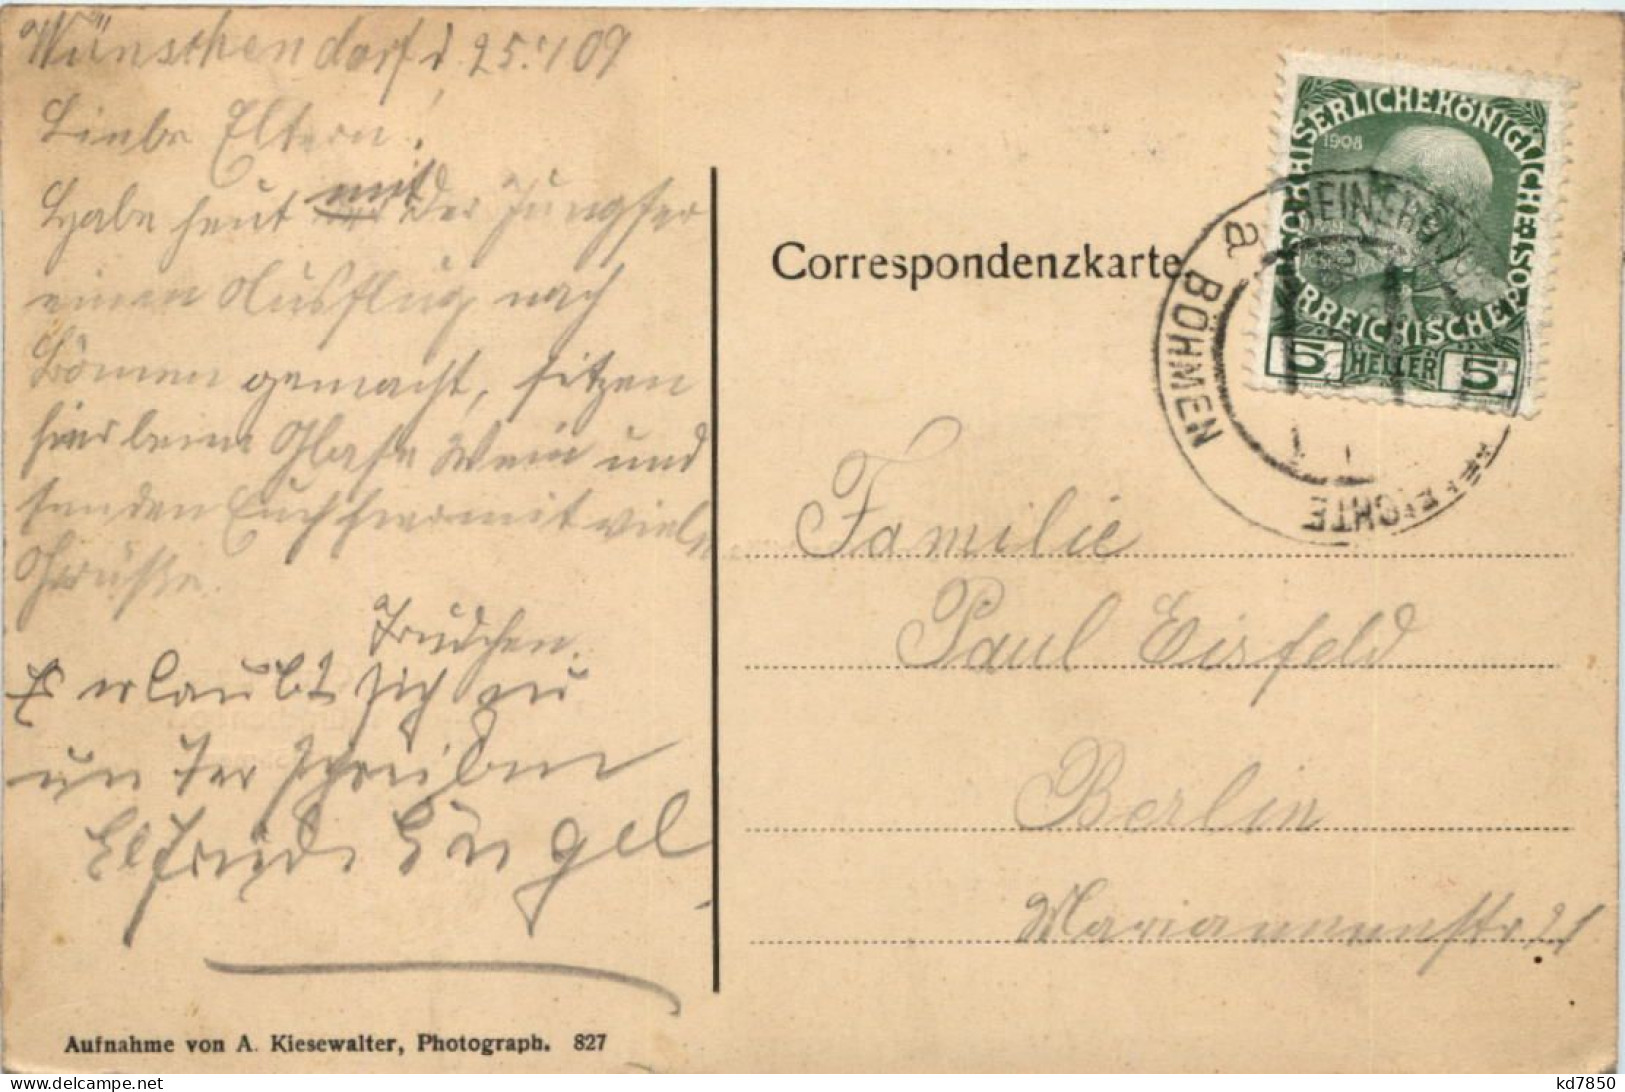 Wünschendorf d. 25. 1 09
Liebe Eltern!
Habe heut mit der Jungfer
einen Ausflug nach
Bömen gemacht, sitzen
hier beim Glase Wein und
senden Euch hiermit viele
Grüsse.
Trudchen.
Es erlaubt sich zu
unterschreiben
Elfriede Engel
Correspondenzkarte
KAISERLICHE KÖNIGLICHE
1908
ÖSTERREICHISCHE POST
5 HELLER 5
a BÖHMEN
FICHTE
Familie
Paul Eisfeld
Berlin
Mariannenstr. 21
Aufnahme von A. Kiesewalter, Photograph. 827
kd7850